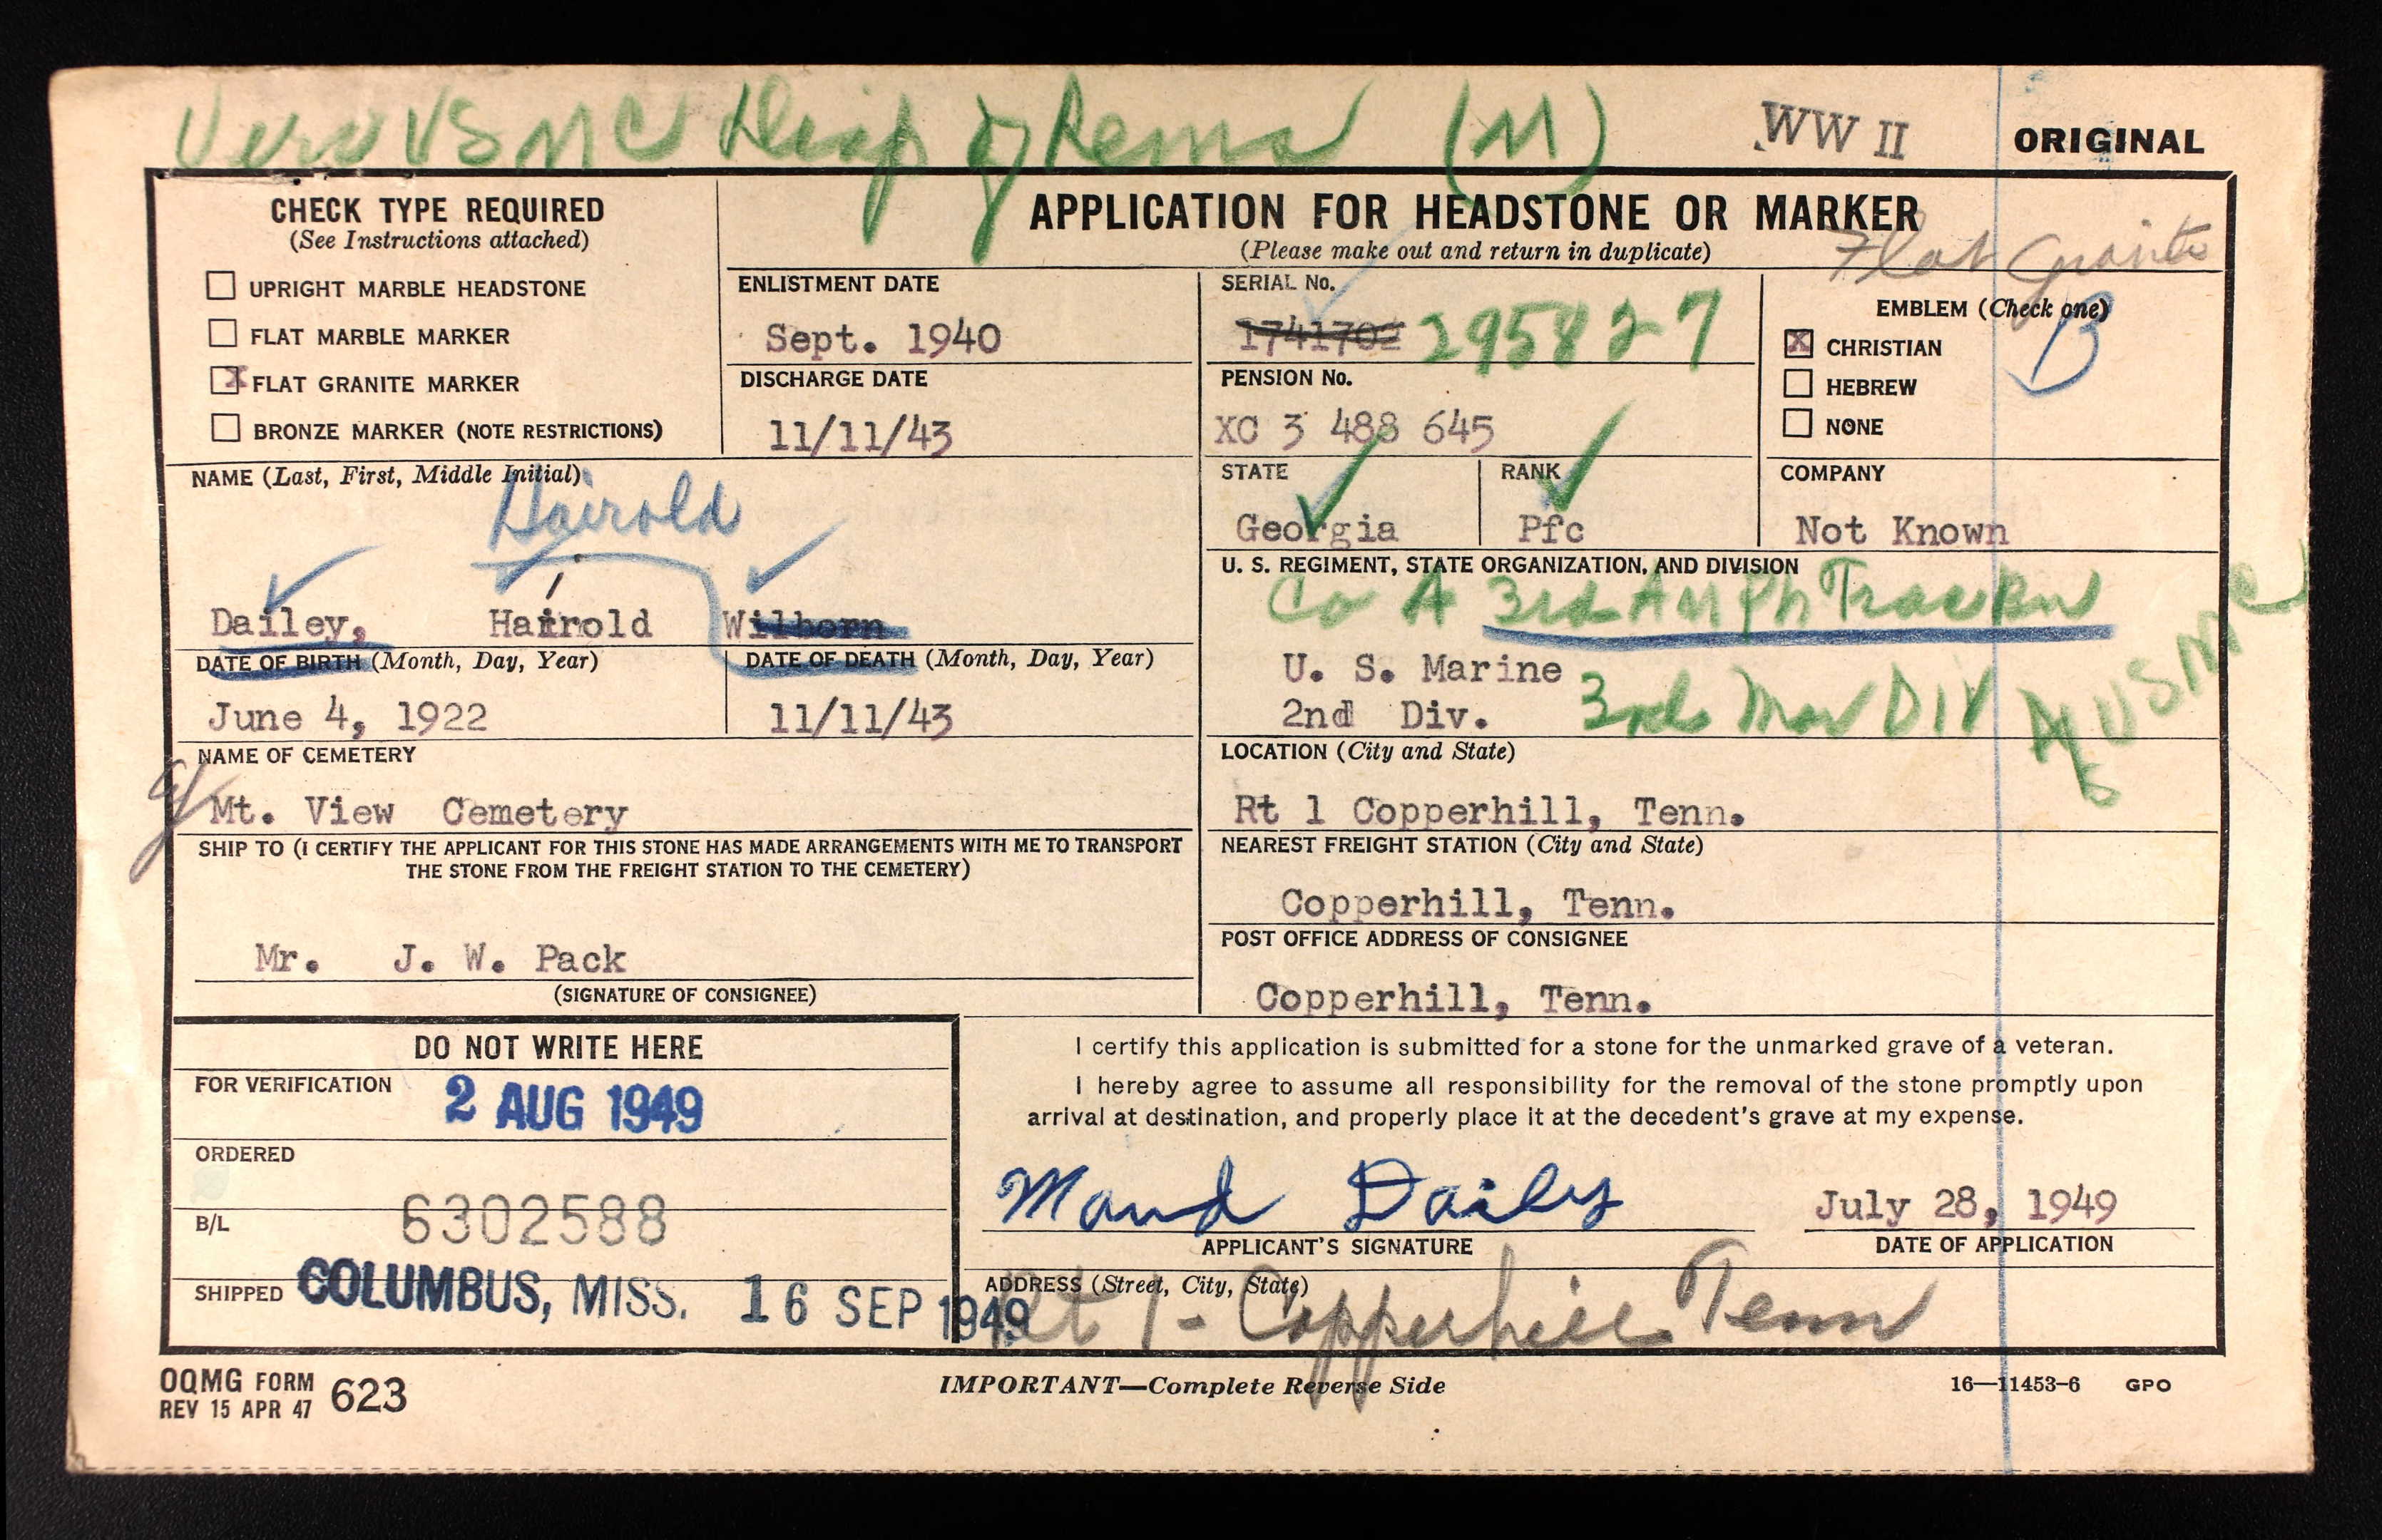 Verv USMC Disp of Rems (M)
WW II
ORIGINAL
CHECK TYPE REQUIRED
(See Instructions attached)
UPRIGHT MARBLE HEADSTONE
FLAT MARBLE MARKER
X FLAT GRANITE MARKER
BRONZE MARKER (NOTE RESTRICTIONS)
APPLICATION FOR HEADSTONE OR MARKER
(Please make out and return in duplicate)
Flat Granite
ENLISTMENT DATE
Sept. 1940
DISCHARGE DATE
11/11/43
SERIAL No.
1741702 295827
PENSION No.
XC 3 488 645
EMBLEM (Check one)
B
X CHRISTIAN
HEBREW
NONE
NAME (Last, First, Middle Initial)
Hairold
Dailey, Hairold Wilborn
STATE
Georgia
RANK
Pfc
COMPANY
Not Known
U. S. REGIMENT, STATE ORGANIZATION, AND DIVISION
Co A 3rd AmPh Trac Bn
U. S. Marine
2nd Div. 3rd Mar DIV
USMC
DATE OF BIRTH (Month, Day, Year)
June 4, 1922
DATE OF DEATH (Month, Day, Year)
11/11/43
NAME OF CEMETERY
Mt. View Cemetery
LOCATION (City and State)
Rt 1 Copperhill, Tenn.
SHIP TO (I CERTIFY THE APPLICANT FOR THIS STONE HAS MADE ARRANGEMENTS WITH ME TO TRANSPORT
THE STONE FROM THE FREIGHT STATION TO THE CEMETERY)
Mr. J. W. Pack
(SIGNATURE OF CONSIGNEE)
NEAREST FREIGHT STATION (City and State)
Copperhill, Tenn.
POST OFFICE ADDRESS OF CONSIGNEE
Copperhill, Tenn.
DO NOT WRITE HERE
FOR VERIFICATION
2 AUG 1949
ORDERED
B/L
6302588
SHIPPED COLUMBUS, MISS. 16 SEP 1949
I certify this application is submitted for a stone for the unmarked grave of a veteran.
I hereby agree to assume all responsibility for the removal of the stone promptly upon
arrival at destination, and properly place it at the decedent's grave at my expense.
Maud Daily
APPLICANT'S SIGNATURE
July 28, 1949
DATE OF APPLICATION
ADDRESS (Street, City, State)
Rt 1 - Copperhill Tenn
OQMG FORM 623
REV 15 APR 47
IMPORTANT—Complete Reverse Side
16—11453-6 GPO